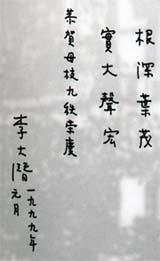 根深葉茂
實大聲宏
恭賀母校九秩榮慶
李大潛
一九九九年
元月